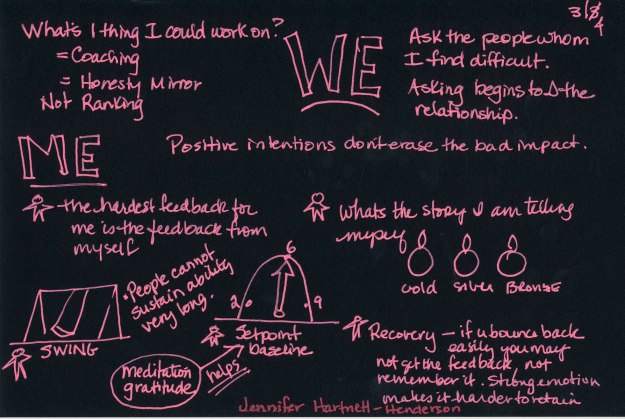 What's 1 thing I could work on?
= Coaching
= Honesty Mirror
Not Ranking
WE
Ask the people whom
I find difficult.
Asking begins to Δ the
relationship.
3/4
ME
Positive intentions don't erase the bad impact.
the hardest feedback for
me is the feedback from
myself
whats the story I am telling
myself
Gold Silver BRONZE
• People cannot
sustain ability
very long.
SWING
2 6 9
Setpoint
baseline
meditation
gratitude
helps
Recovery – if u bounce back
easily you may
not get the feedback, not
remember it. Strong emotion
makes it harder to retain
Jennifer Hartnett-Henderson